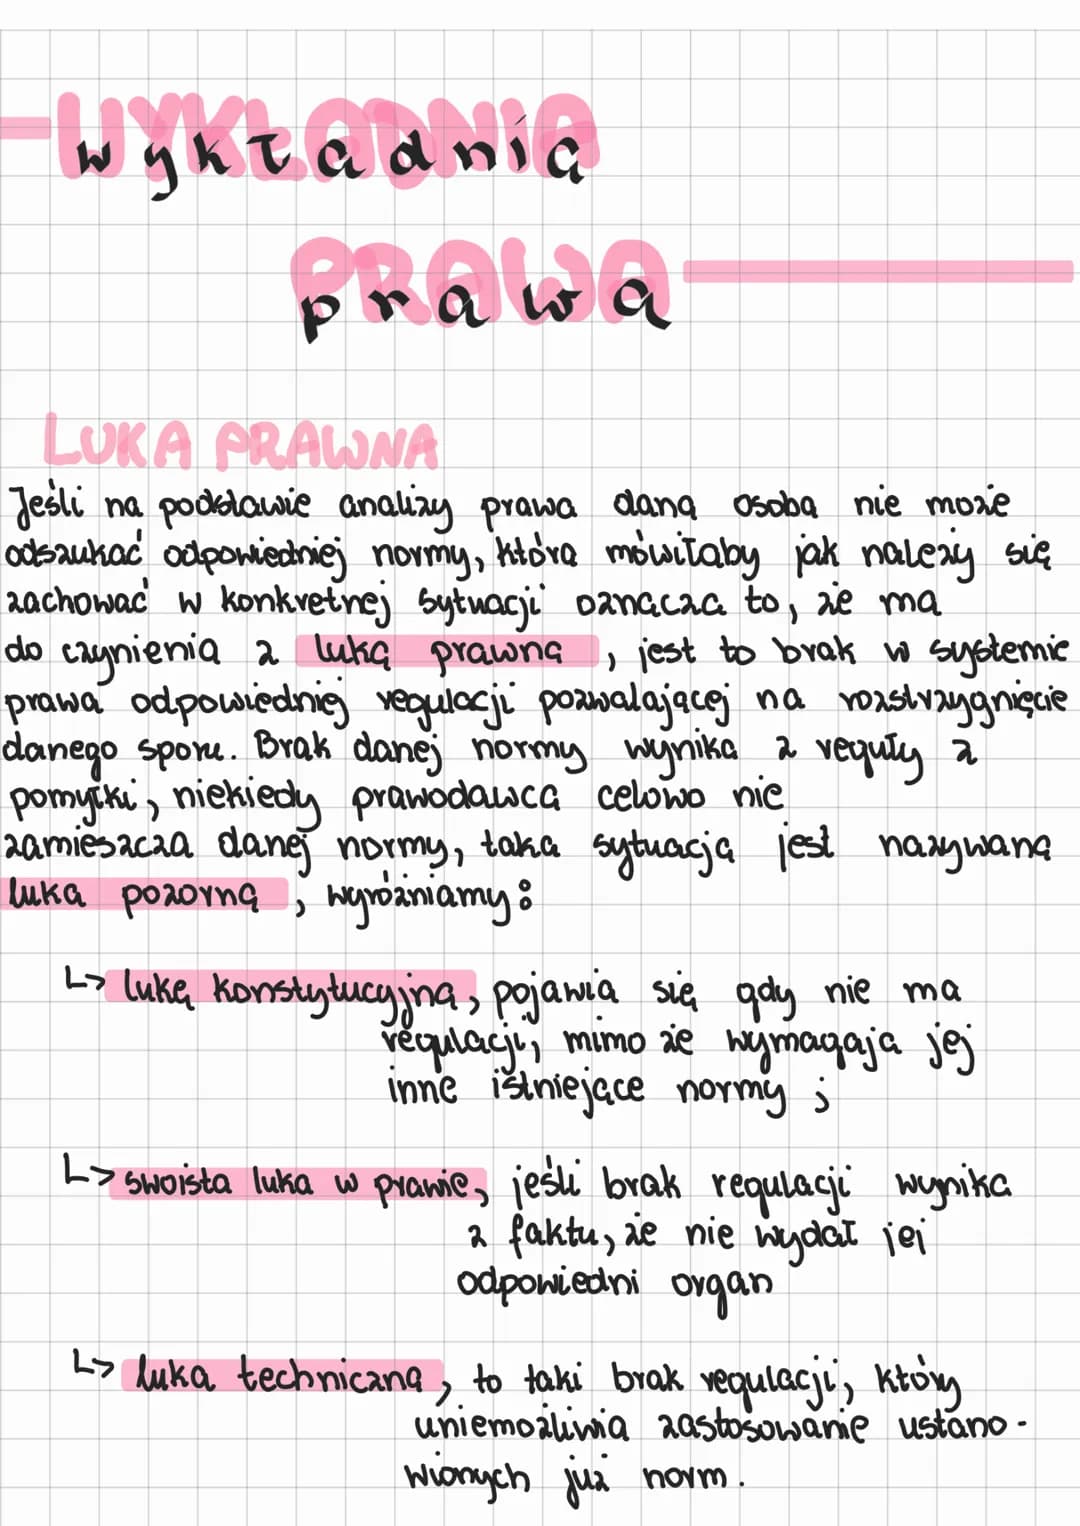 WYKŁADNIA
wykładnia
PRAWA
prawa
LUKA PRAWNA
Jeśli na podstawie analizy prawa dana osoba nie może
odszukać odpowiedniej normy, która mówiłaby jak należy się
zachować w konkretnej sytuacji oznacza to, że ma
do czynienia z luką prawną, jest to brak w systemie
prawa odpowiedniej regulacji pozwalającej na rozstrzygnięcie
danego sporu. Brak danej normy wynika z reguły z
pomyłki, niekiedy prawodawca celowo nie
zamieszcza danej normy, taka sytuacja jest nazywana
luką pozorną, wyróżniamy:
↳ lukę konstytucyjną, pojawia się gdy nie ma
regulacji, mimo że wymagają jej
inne istniejące normy;
↳ swoista luka w prawie, jeśli brak regulacji wynika
z faktu, że nie wydał jej
odpowiedni organ
↳ luka techniczna, to taki brak regulacji, który
uniemożliwia zastosowanie ustano-
wionych już norm.